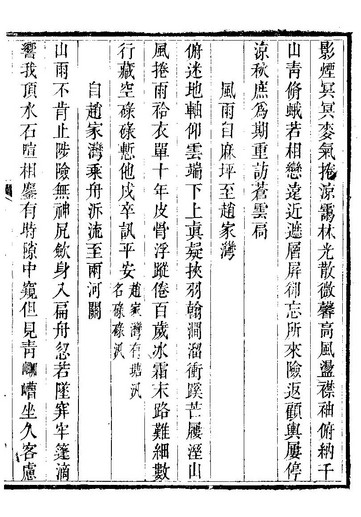 影煙冥冥麥氣捲涼靄林光散微馨高風盪襟袖俯納千
山靑脩峨若相戀遠近遮層屏卻忘所來險返顧輿屢停
涼秋庶爲期重訪蒼雲扃
風雨自麻坪至趙家灣
俯迷地軸仰雲端下上眞疑挾羽翰澗溜衝蹊芒屨溼山
風捲雨袷衣單十年皮骨浮蹤倦百歲冰霜末路難細數
行藏空碌碌慙他戍卒訊平安趙家灣有塘汛名碌碌汛
自趙家灣乘舟泝流至兩河關
山雨不肯止陟險無神尻欹身入扁舟忽若墜穽牢篷滴
響我頂水石喧相鏖有時隙中窺但見靑嶇嶆坐久客慮